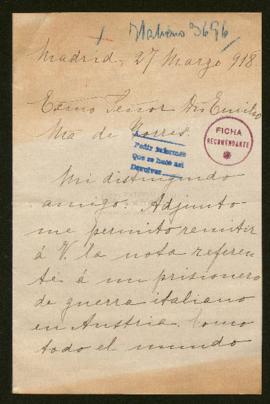 Italiano 3696
Madrid, 27 Marzo 918
Exmo Señor Dn Emilio
Ma de Torres.
FICHA
RECOMENDANTE
Pedir informes
Que se hace así
Devolver
Mi distinguido
amigo: Adjunto
me permito remitir
á V. la nota referen
te á un prisionero
de guerra italiano
en Austria. Como
todo el mundo